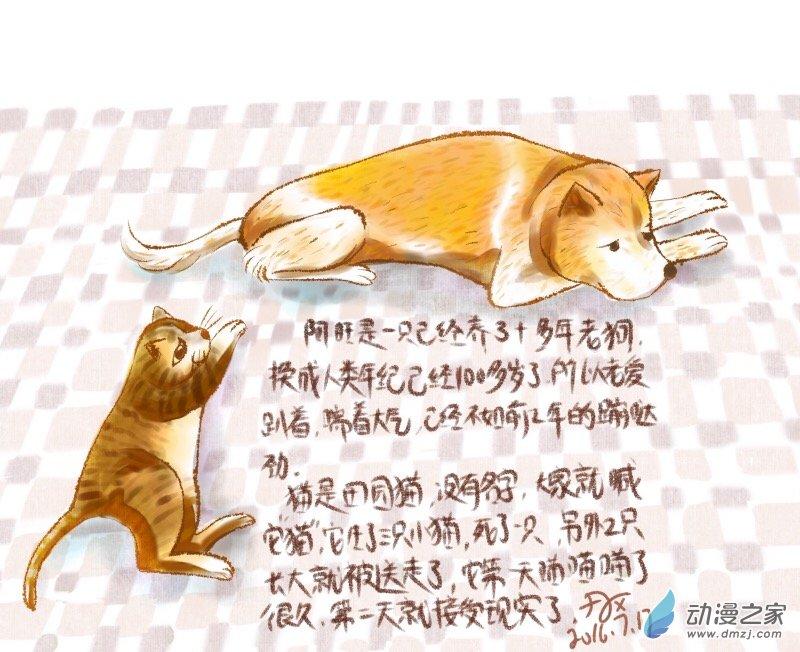 阿旺是一只己经养了十多年老狗,
换成人类年纪己经100多岁了,所以老爱
趴着,喘着大气,己经不如前几年的蹦哒
劲.
猫是田园猫,没有名字,大家就喊
它“猫”,它生了三只小猫,死了一只,另外2只
长大就被送走了,它第一天喵喵喵了
很久,第二天就接受现实了.
2016.7.17
动漫之家
www.dmzj.com